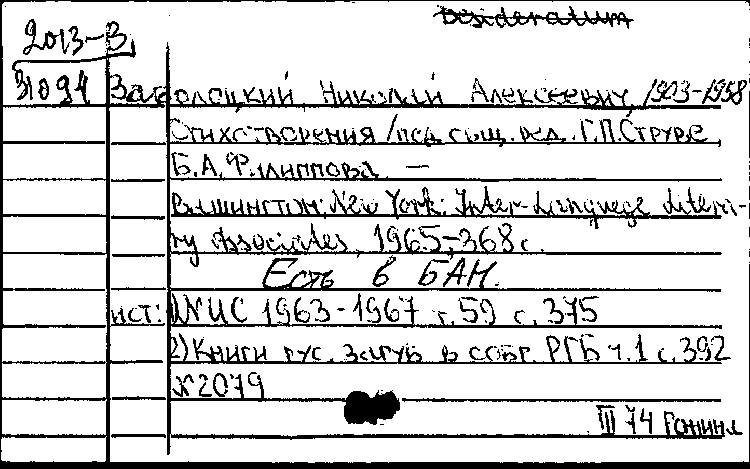 Desideratum
2013-В
31094 Заболоцкий, Николай Алексеевич, 1903-1958
Стихотворения / под общ. ред. Г.П. Струве,
Б.А. Филиппова. —
Вашингтон; New York: Inter-Language Litera-
ry Associates, 1965.-368 с.
Есть в БАН.
ист: 1) NUC 1963-1967 т. 59 с. 375
2) Книги рус. заруб. в собр. РГБ ч. 1 с. 392
№ 2079
III 74